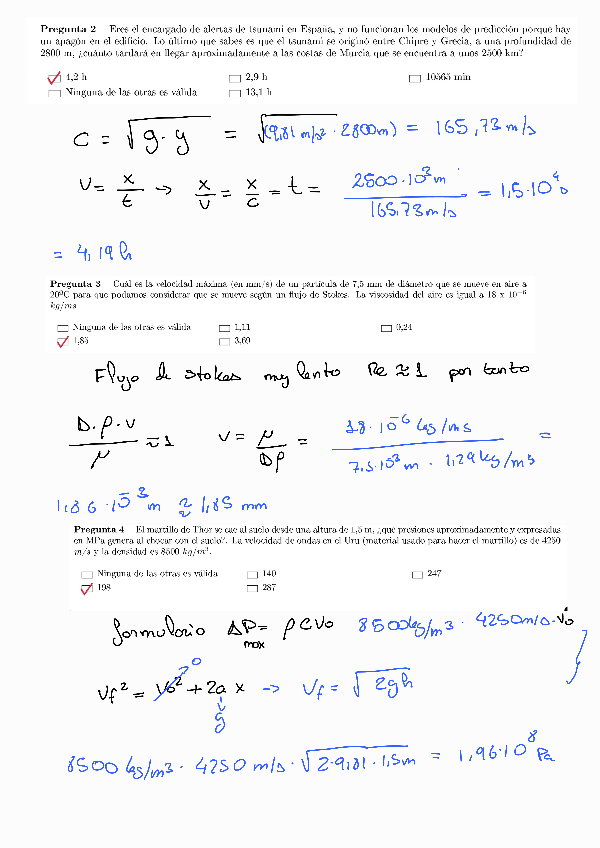 Pregunta 2 Eres el encargado de alertas de tsunami en España, y no funcionan los modelos de predicción porque hay
un apagón en el edificio. Lo último que sabes es que el tsunami se originó entre Chipre y Grecia, a una profundidad de
2800 m, ¿cuánto tardará en llegar aproximadamente a las costas de Murcia que se encuentra a unos 2500 km?
4,2 h 2,9 h 10565 min
Ninguna de las otras es válida 13,1 h
c = √g·y = √(9,81 m/s² · 2800m) = 165,73 m/s
v = x/t → x/v = x/c = t = 2500·10³ m / 165,73 m/s = 1,5·10⁴ s
= 4,19 h
Pregunta 3 Cuál es la velocidad máxima (en mm/s) de un partícula de 7,5 mm de diámetro que se mueve en aire a
20ºC para que podamos considerar que se mueve según un flujo de Stokes. La viscosidad del aire es igual a 18 x 10⁻⁶
kg/ms
Ninguna de las otras es válida 1,11 0,24
1,85 3,69
Flujo de stokes muy lento Re ≈ 1 por tanto
D·ρ·v / μ ≈ 1 v = μ / Dρ = 18·10⁻⁶ kg/ms / 7,5·10³ m · 1,29 kg/m³ =
1,86·10⁻³ m ≈ 1,85 mm
Pregunta 4 El martillo de Thor se cae al suelo desde una altura de 1,5 m, ¿que presiones aproximadamente y expresadas
en MPa genera al chocar con el suelo?. La velocidad de ondas en el Uru (material usado para hacer el martillo) es de 4250
m/s y la densidad es 8500 kg/m³.
Ninguna de las otras es válida 140 247
198 287
formulario ΔP max = ρCVo 8500kg/m3 · 4250m/s·Vo
Vf² = Vo² + 2a x → Vf = √2gh
0
g
8500 kg/m3 · 4250 m/s · √2·9,81·1,5m = 1,96·10⁸ Pa